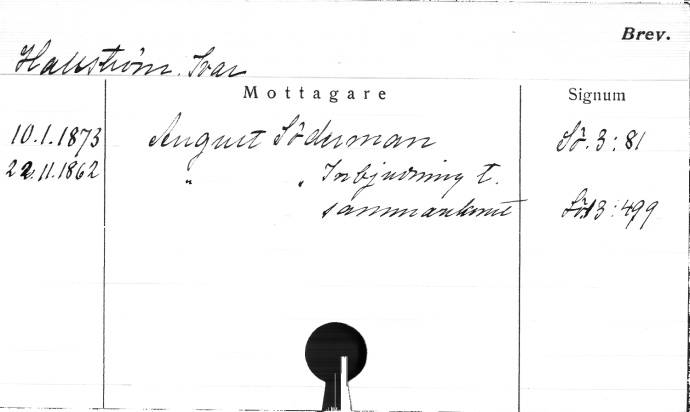 Brev.
Hallström, Ivar
Mottagare Signum
10.1.1873 August Söderman Sö. 3:81
22.11.1862 " " Inbjudning t. sammankomst Sö. 3:499